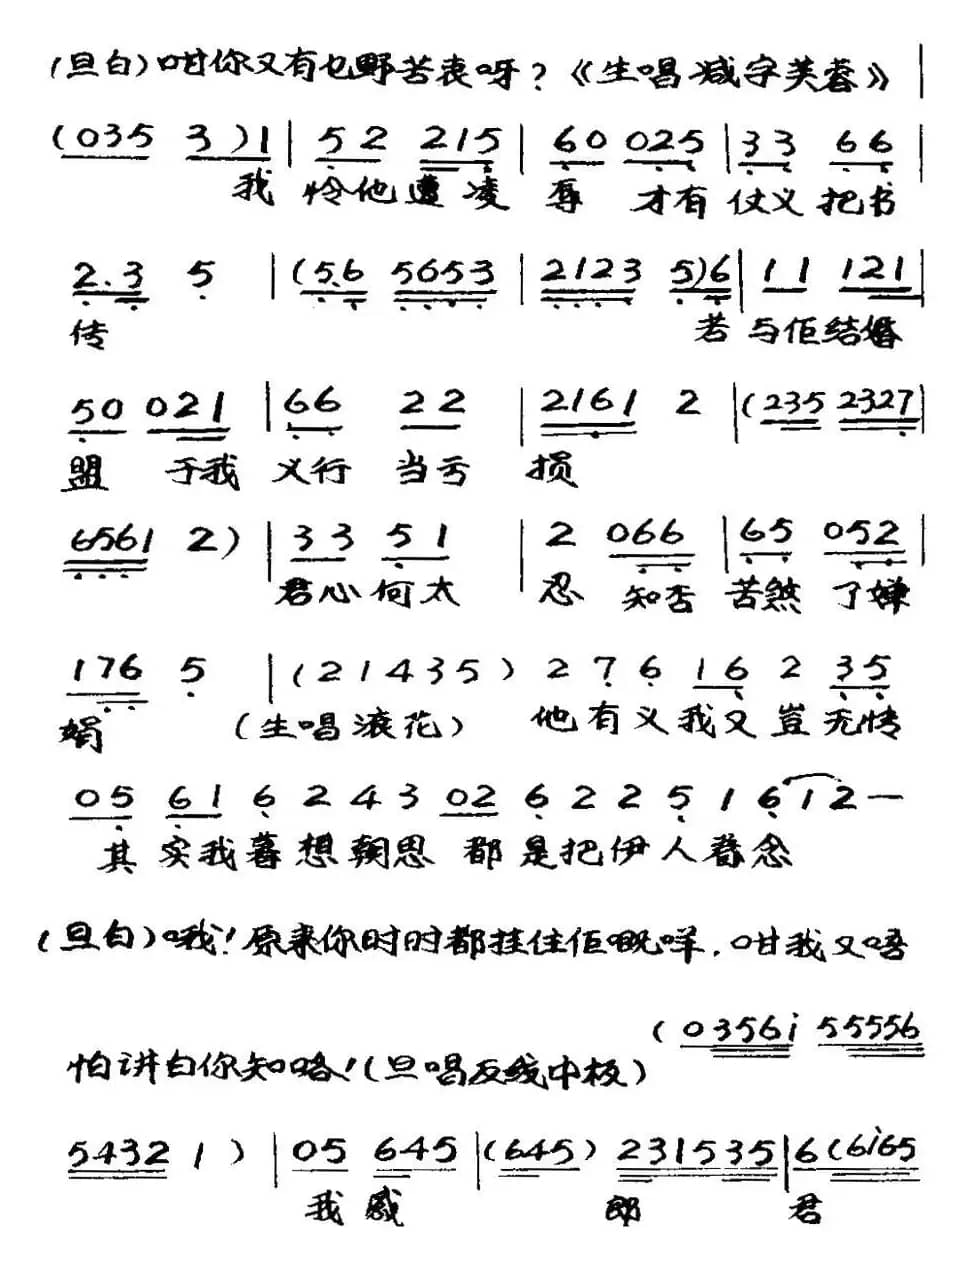 (旦白)咁你又有乜野苦衷呀?《生唱减字芙蓉》
(035 3)1 | 52 215 | 60 025 | 33 66
我 怜他遭凌 辱 才有仗义把书
2.3 5 | (56 5653 | 2123 5)6 | 11 121
传 若与佢结婚
50 021 | 66 22 | 2161 2 | (235 2327
盟 于我 义行 当亏 损
6561 2) | 33 51 | 2 066 | 65 052
君心何太 忍 知否 苦煞 了婵
176 5 | (21435) 2 7 6 16 2 35
娟 (生唱滚花) 他有义我又豈无情
05 61 6 2 4 3 02 6 2 2 5 1 6 1 2 一
其 实我暮想朝思 都是把伊人眷念
(旦白)哦!原来你时时都挂住佢嘅咩,咁我又唔
(0356i 55556
怕讲白你知咯!(旦唱反线中板)
5432 1) | 05 645 | (645) 231535 | 6(6i65
我感 郎 君